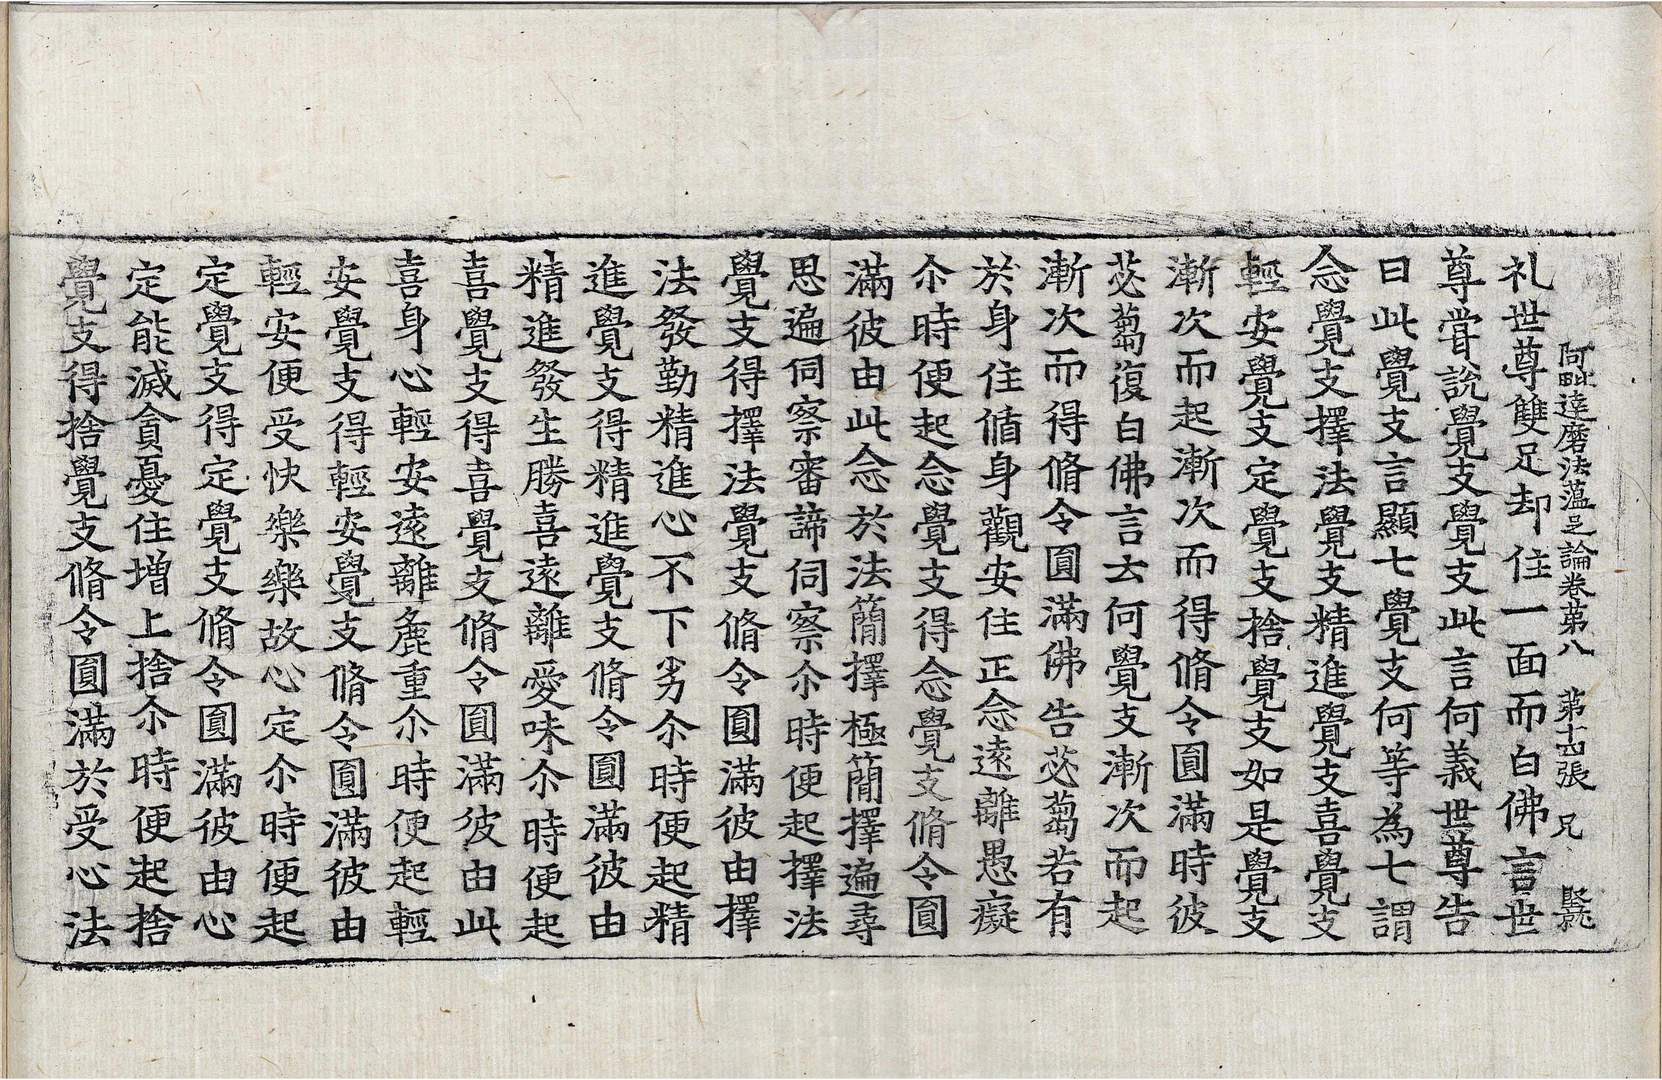 阿毗達磨法蕰足論卷苐八 苐十四張 兄
礼世尊雙足却住一面而白佛言世
尊甞說覺支覺支此言何義世尊告
曰此覺支言顯七覺支何等為七謂
念覺支擇法覺支精進覺支喜覺支
輕安覺支定覺支捨覺支如是覺支
漸次而起漸次而得脩令圓滿時彼
苾蒭復白佛言云何覺支漸次而起
漸次而得脩令圓滿佛告苾蒭若有
於身住循身觀安住正念遠離愚癡
尒時便起念覺支得念覺支脩令圓
滿彼由此念於法簡擇極簡擇遍尋
思遍伺察審諦伺察尒時便起擇法
覺支得擇法覺支脩令圓滿彼由擇
法發勤精進心不下劣尒時便起精
進覺支得精進覺支脩令圓滿彼由
精進發生勝喜遠離愛味尒時便起
喜覺支得喜覺支脩令圓滿彼由此
喜身心輕安遠離麁重尒時便起輕
安覺支得輕安覺支脩令圓滿彼由
輕安便受快樂樂故心定尒時便起
定覺支得定覺支脩令圓滿彼由心
定能滅貪憂住增上捨尒時便起捨
覺支得捨覺支脩令圓滿於受心法